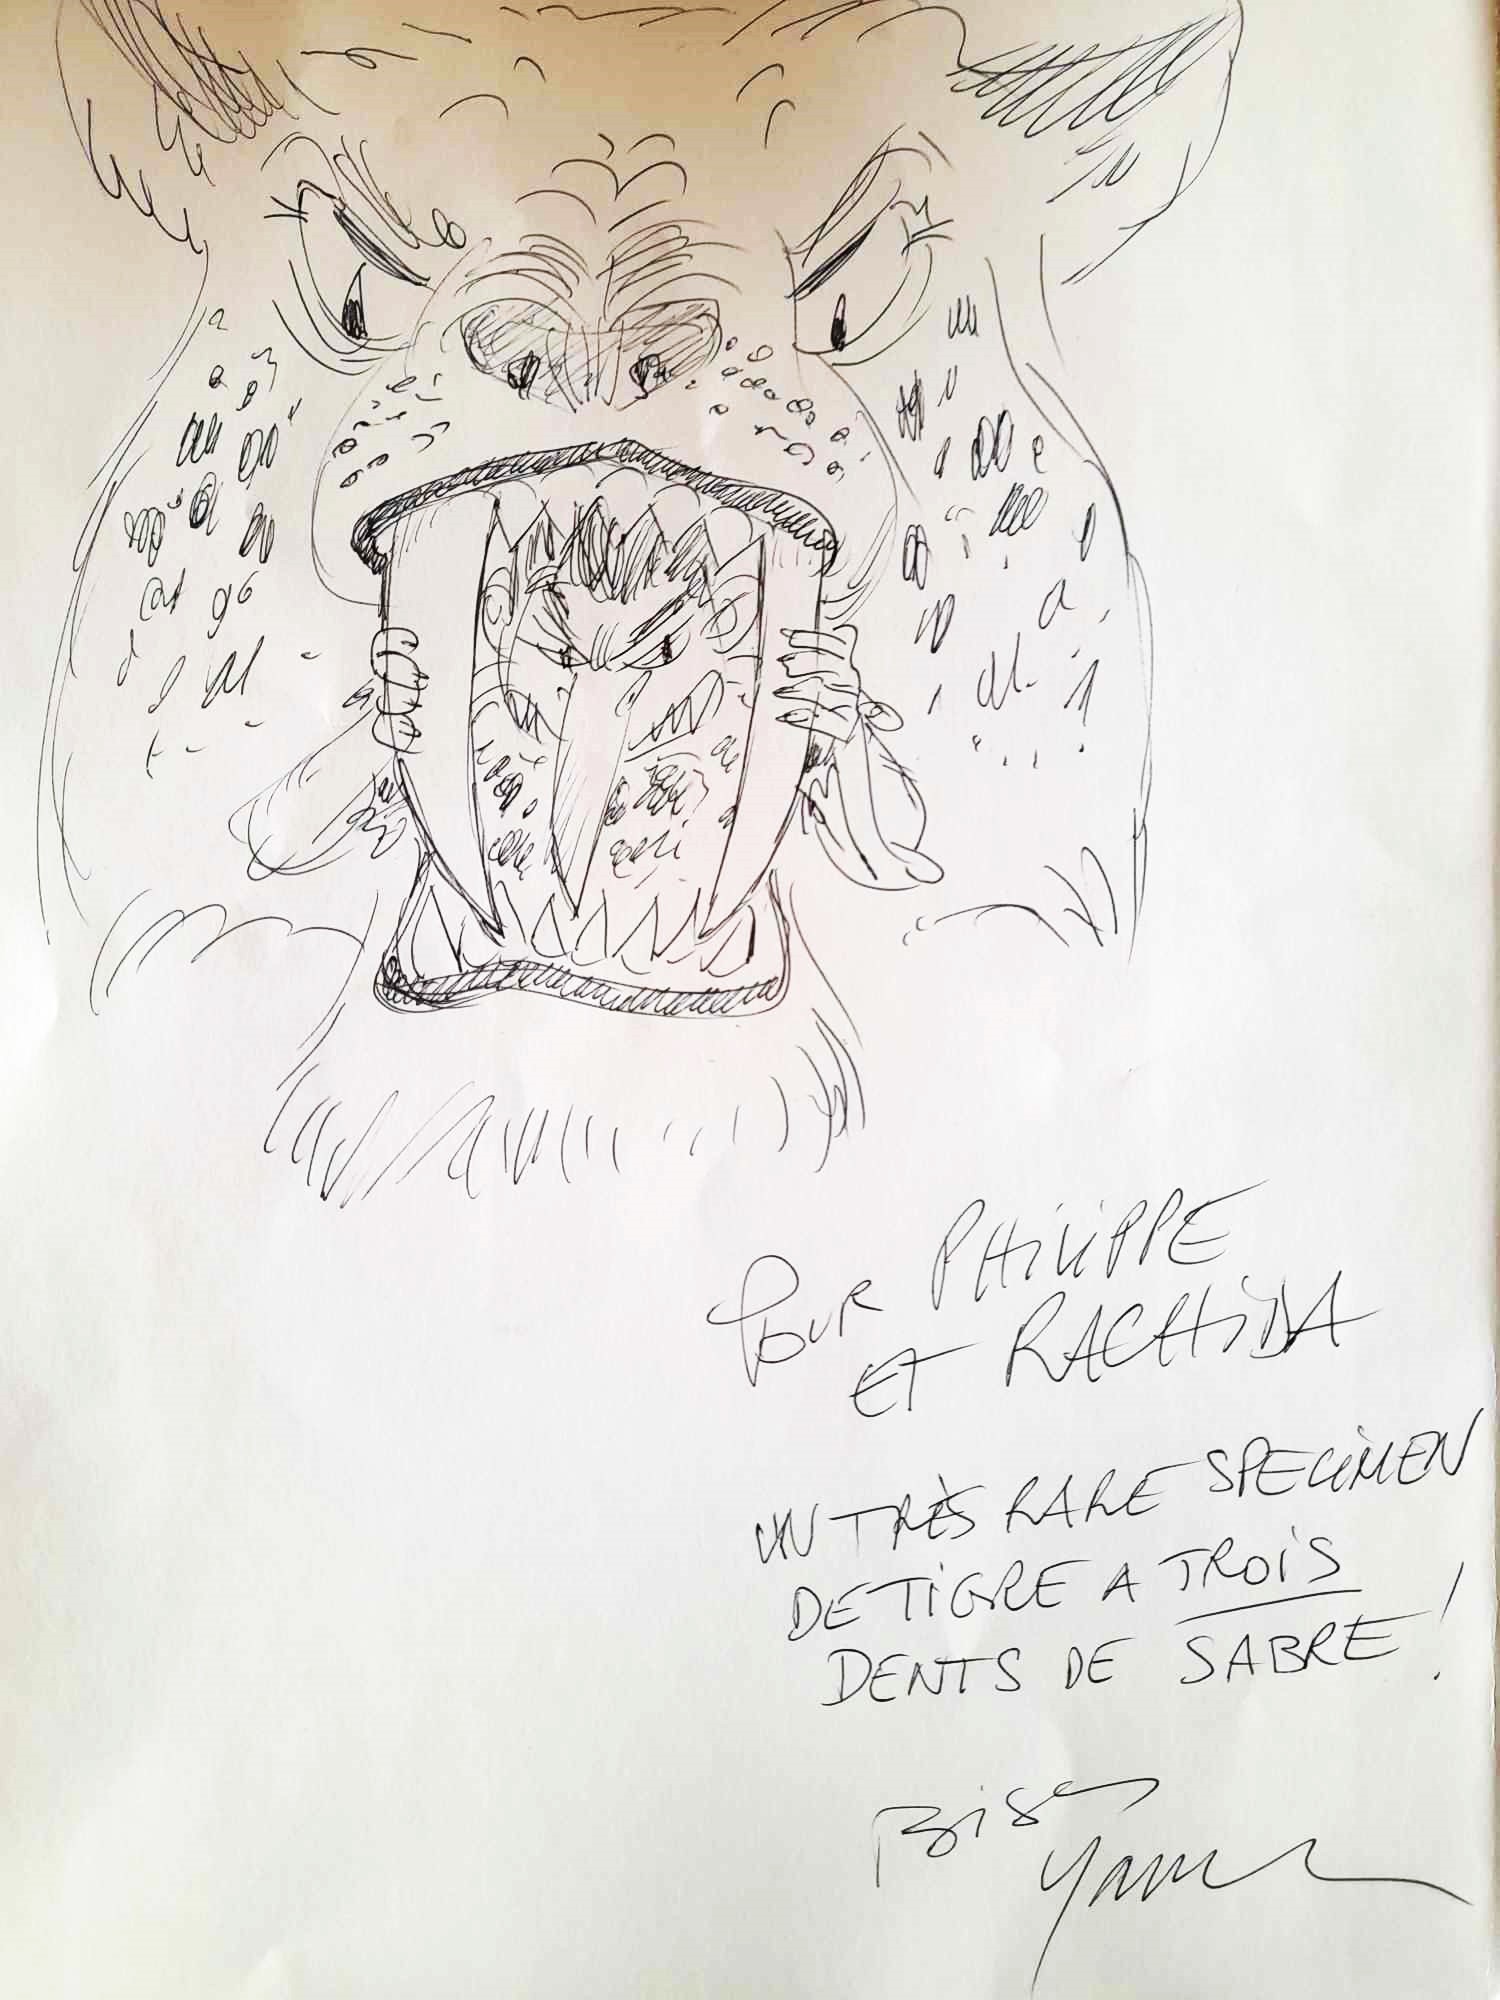 Pour PHILIPPE
ET RACHIDA
UN TRÈS RARE SPECIMEN
DE TIGRE A TROIS
DENTS DE SABRE !
Bises
Yann